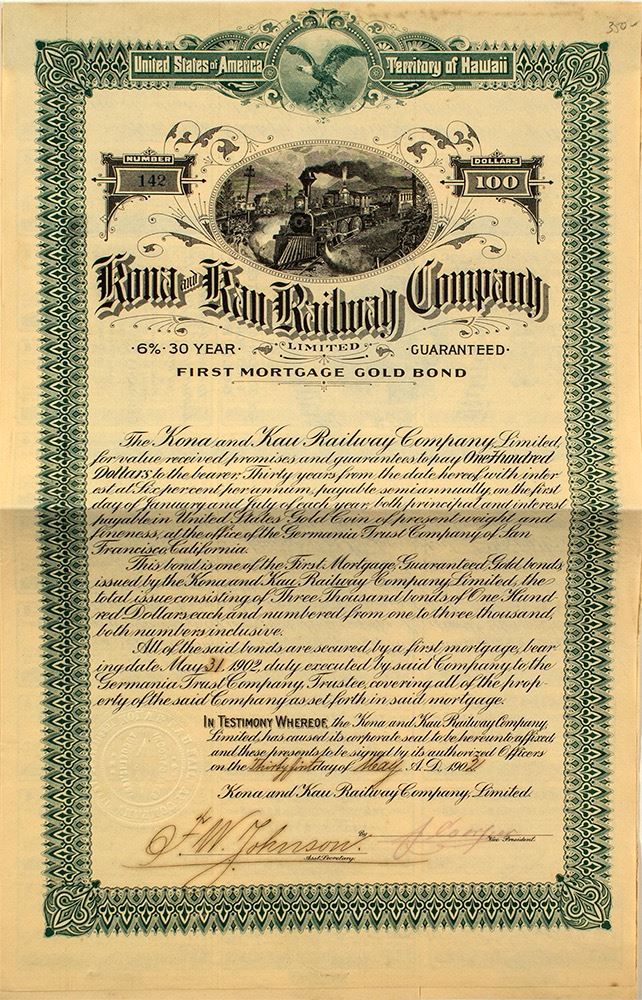 350-
United States of America Territory of Hawaii
NUMBER
142
DOLLARS
100
Kona and Kau Railway Company
LIMITED
6% · 30 YEAR · GUARANTEED ·
FIRST MORTGAGE GOLD BOND
The Kona and Kau Railway Company, Limited,
for value received promises and guarantees to pay One Hundred
Dollars to the bearer, Thirty years from the date hereof with inter
est at Six per cent per annum, payable semiannually, on the first
day of January and July of each year, both principal and interest
payable in United States Gold Coin of present weight and
fineness, at the office of the Germania Trust Company of San
Francisco, California.
This bond is one of the First Mortgage, Guaranteed Gold bonds
issued by the Kona and Kau Railway Company Limited, the
total issue consisting of Three Thousand bonds of One Hund
red Dollars each and numbered from one to three thousand,
both numbers inclusive.
All of the said bonds are secured by a first mortgage, bear
ing date May 31 1902, duly executed by said Company to the
Germania Trust Company, Trustee, covering all of the prop
erty of the said Company as set forth in said mortgage.
IN TESTIMONY WHEREOF, the Kona and Kau Railway Company,
Limited, has caused its corporate seal to be hereunto affixed
and these presents to be signed by its authorized Officers
on the Thirty first day of May A. D., 190
Kona and Kau Railway Company, Limited.
F. W. Johnson.
Asst. Secretary.
By
Vice President.